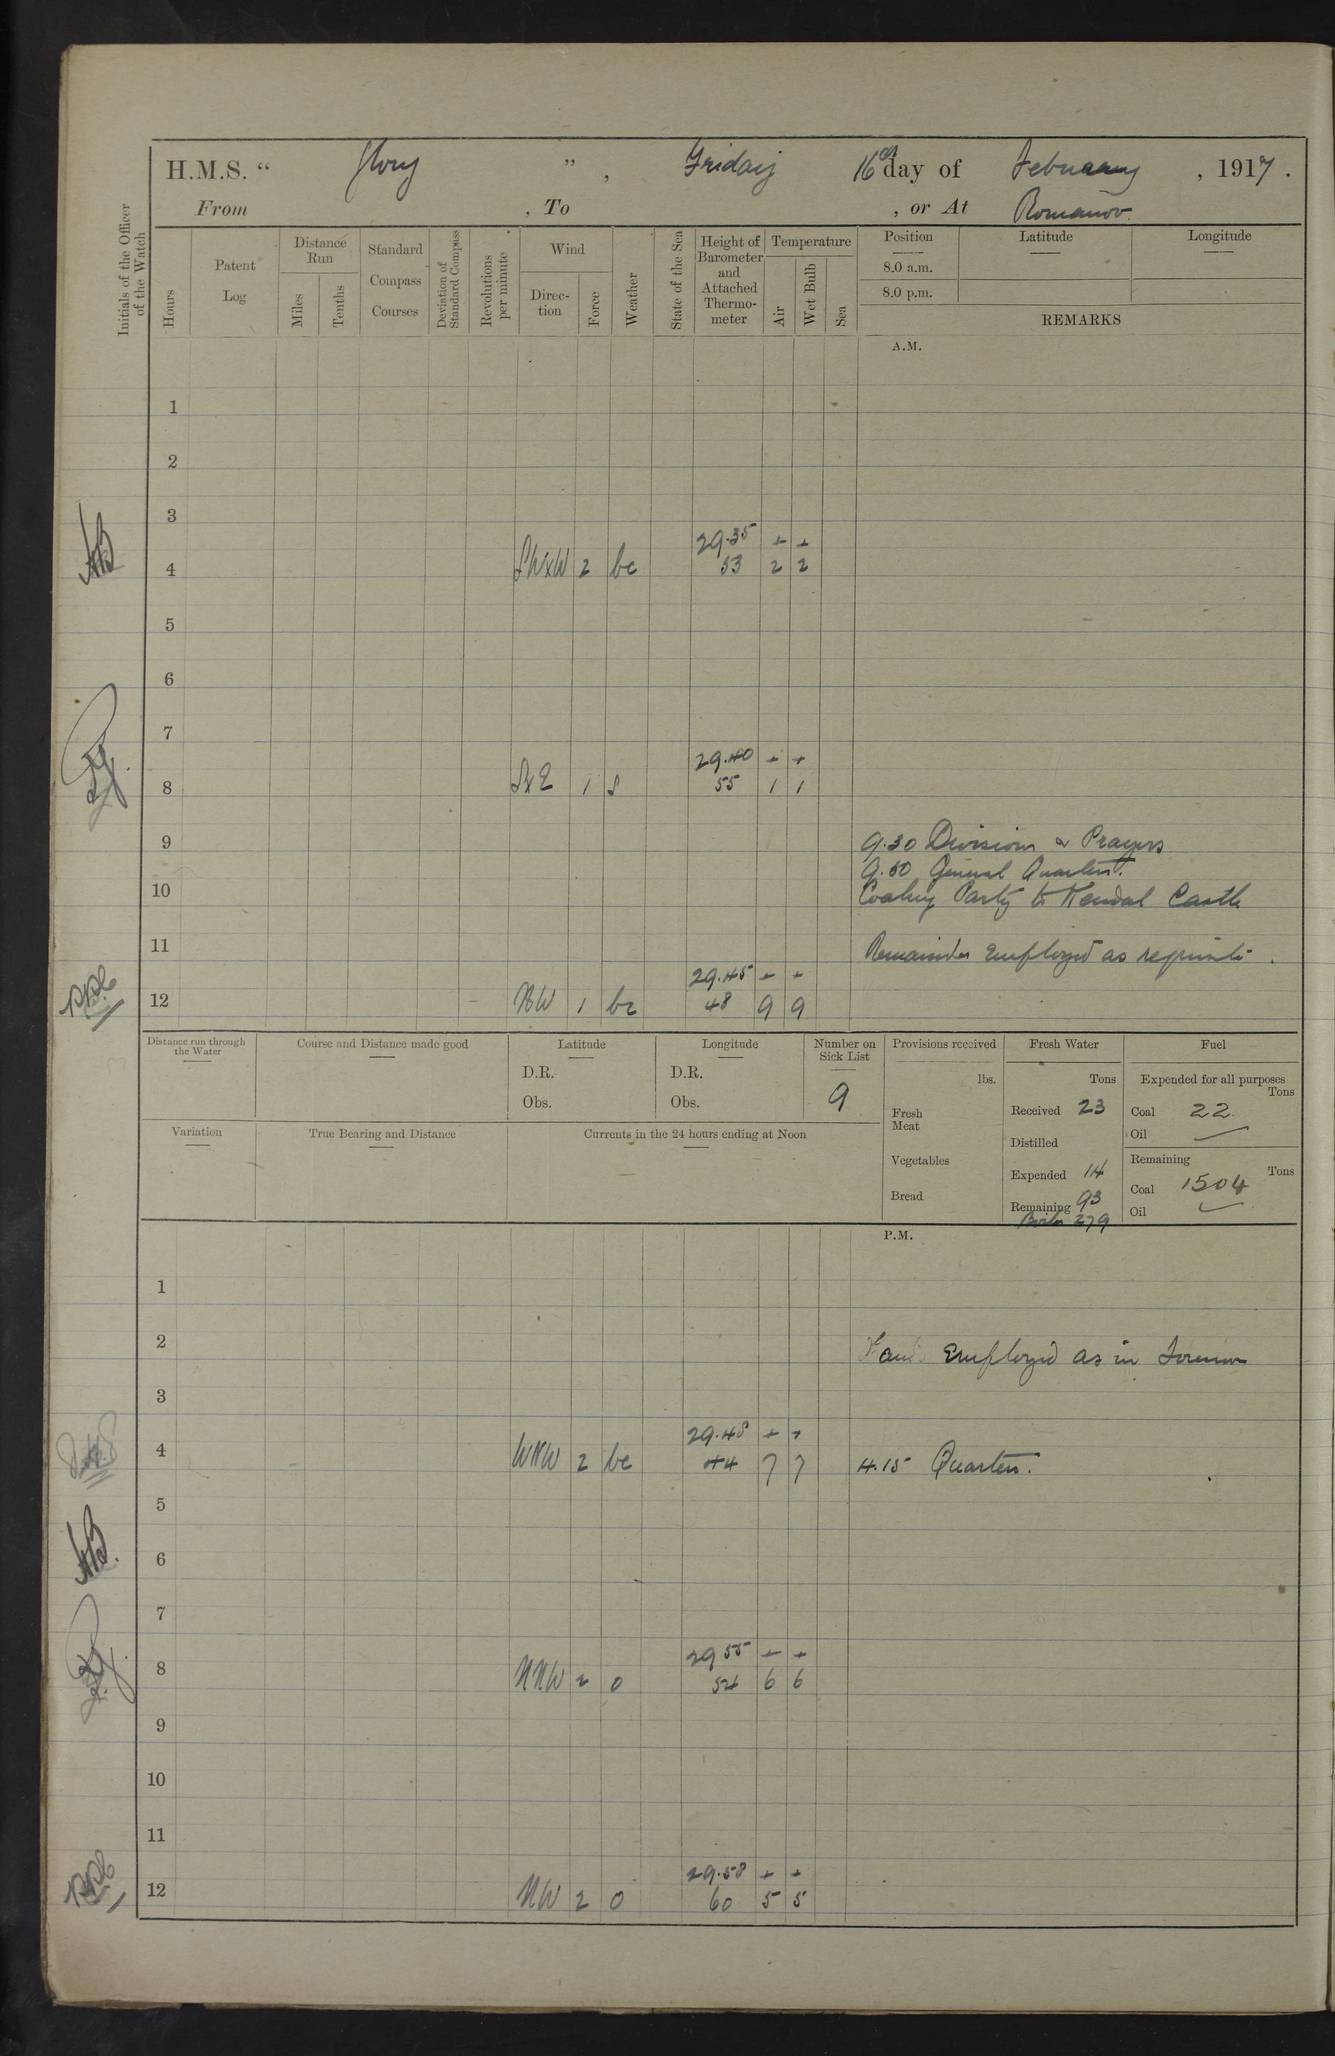 H.M.S. “ Glory ” , Friday 16th day of February , 1917 .
From , To , or At Romanov.
Initials of the Officer of the Watch
Hours
Patent Log
Distance Run
Miles
Tenths
Standard Compass Courses
Deviation of Standard Compass
Revolutions per minute
Wind
Direction
Force
Weather
State of the Sea
Height of Barometer and Attached Thermometer
Temperature
Air
Wet Bulb
Sea
Position Latitude Longitude
8.0 a.m.
8.0 p.m.
REMARKS
A.M.
1
2
3
29.35 + +
4 SWxW 2 bc 53 2 2
5
6
7
29.40 + +
8 SxE 1 s 55 1 1
9 9.30 Divisions & Prayers
9.50 General Quarters.
10 Coaling Party to Kendal Castle
11 Remainder Employed as requisite.
29.45 + +
12 NW 1 bc 48 9 9
Distance run through the Water
Course and Distance made good
Latitude
D.R.
Obs.
Longitude
D.R.
Obs.
Number on Sick List
9
Variation
True Bearing and Distance
Currents in the 24 hours ending at Noon
Provisions received
lbs.
Fresh Meat
Vegetables
Bread
Fresh Water
Tons
Received 23
Distilled
Expended 14
Remaining 93
Boiler 279
Fuel
Expended for all purposes
Tons
Coal 22
Oil
Remaining
Tons
Coal 1504
Oil
P.M.
1
2 Employed as in
3
29.48 + +
4 WNW 2 bc 44 7 7 4.15 Quarters.
5
6
7
29 55 + +
8 NNW 2 o 54 6 6
9
10
11
29.58 + +
12 NW 2 o 60 5 5